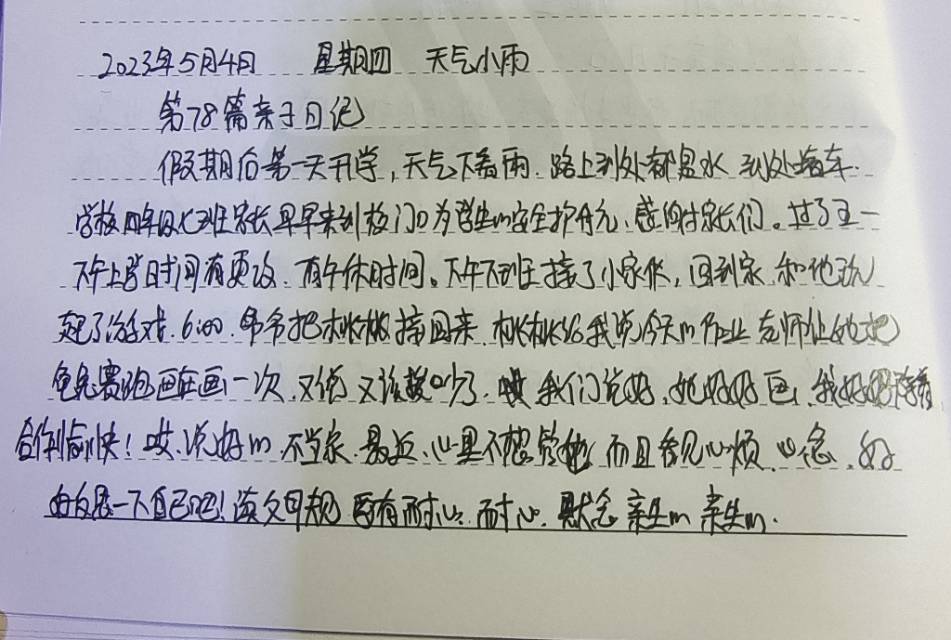 2023年5月4日 星期四 天气小雨
第78篇亲子日记
假期后第一天开学,天气下着雨.路上到处都是水 到处堵车.
学校四年级七班家长早早来到校门口为学生的安全护航、感谢家长们。过了五一
下午上学时间有更改.有午休时间。下午下班接了小家伙,回到家.和他玩
起了游戏.6:00.爷爷把桃桃接回来.桃桃给我说今天的作业 老师让她把
龟兔赛跑画在画一次.又说 又该数叨了.哎 我们说好.她好好画.我好好陪着
合作愉快!哎.说好的.不当家.最近.心里不想管她 而且看见心烦.心急.好
好反思一下自己吧!读父母规 要有耐心.耐心.默念 亲生的 亲生的.